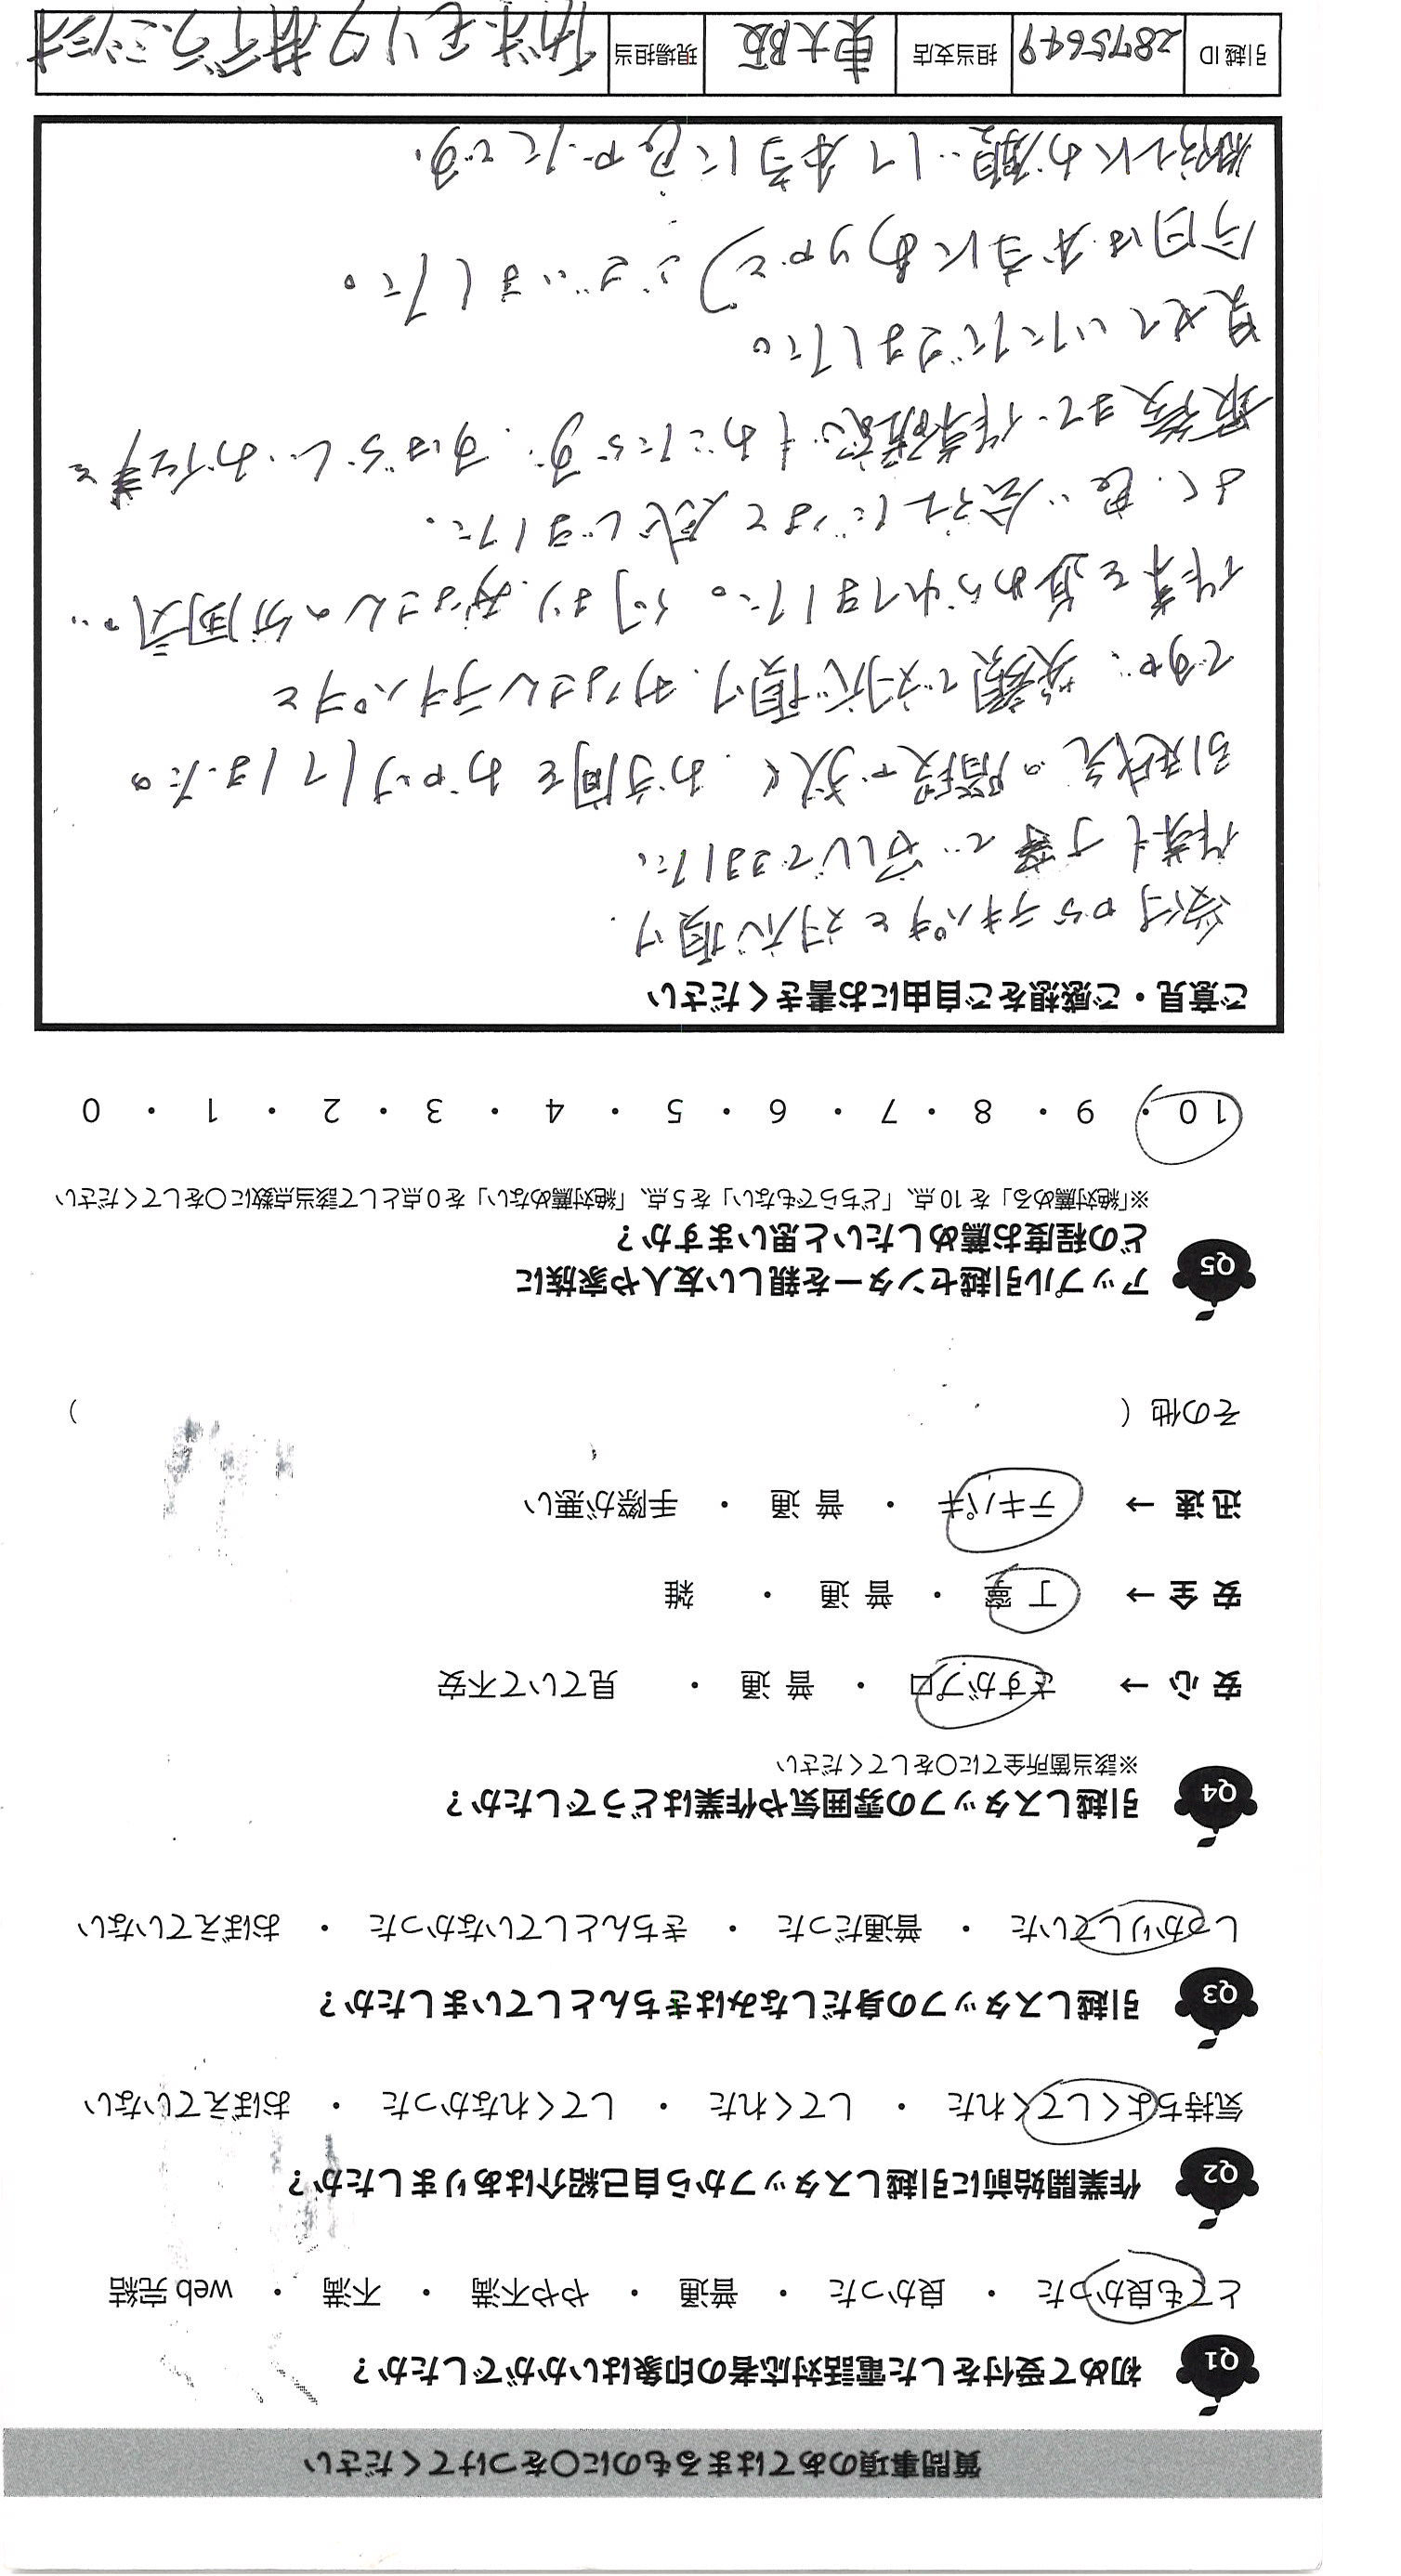 質問事項のあてはまるものに〇をつけてください
Q1 初めて受付をした電話対応者の印象はいかがでしたか？
とても良かった ・ 良かった ・ 普通 ・ やや不満 ・ 不満 ・ web 完結
Q2 作業開始前に引越しスタッフから自己紹介はありましたか？
気持ちよくしてくれた ・ してくれた ・ してくれなかった ・ おぼえていない
Q3 引越しスタッフの身だしなみはきちんとしていましたか？
しっかりしていた ・ 普通だった ・ きちんとしていなかった ・ おぼえていない
Q4 引越しスタッフの雰囲気や作業はどうでしたか？
※該当箇所全てに〇をしてください
安 心 → さすがプロ ・ 普 通 ・ 見ていて不安
安 全 → 丁 寧 ・ 普 通 ・ 雑
迅 速 → テキパキ ・ 普 通 ・ 手際が悪い
その他（ ）
Q5 アップル引越センターを親しい友人や家族に
どの程度お薦めしたいと思いますか？
※「絶対薦める」を 10 点、「どちらでもない」を 5 点、「絶対薦めない」を 0 点として該当点数に〇をしてください
10 ・ 9 ・ 8 ・ 7 ・ 6 ・ 5 ・ 4 ・ 3 ・ 2 ・ 1 ・ 0
ご意見・ご感想をご自由にお書きください
からテキパキと対応頂け、
作業も丁寧で安心できました。
引越先の階段が狭く、お手間をおかけしてしまったの
ですが、笑顔で対応頂け、みなさんテキパキと
作業を進められてました。何より、みなさんの雰囲気が
よく、良い会社だなと感じました。
最後まで作業確認もおこたらず、すばらしいお仕事を
見せていただきました。
今日は本当にありがとうございました。
御社にお願いして本当に良かったです。
引越 ID 2875649 担当支店 東大阪 現場担当